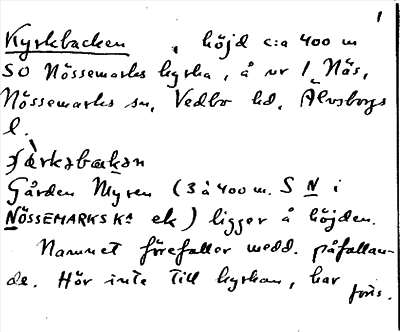 1
Kyrkbacken, höjd c:a 400 m
SO Nössemarks kyrka, å nr 1 Näs,
Nössemarks sn, Vedbo hd, Älvsborgs
l.
Gården Myren (3 à 400 m. S N i
NÖSSEMARKS KA ek) ligger å höjden.
Namnet förefaller medd. påfallan-
de. Hör inte till kyrkan, har
förr.